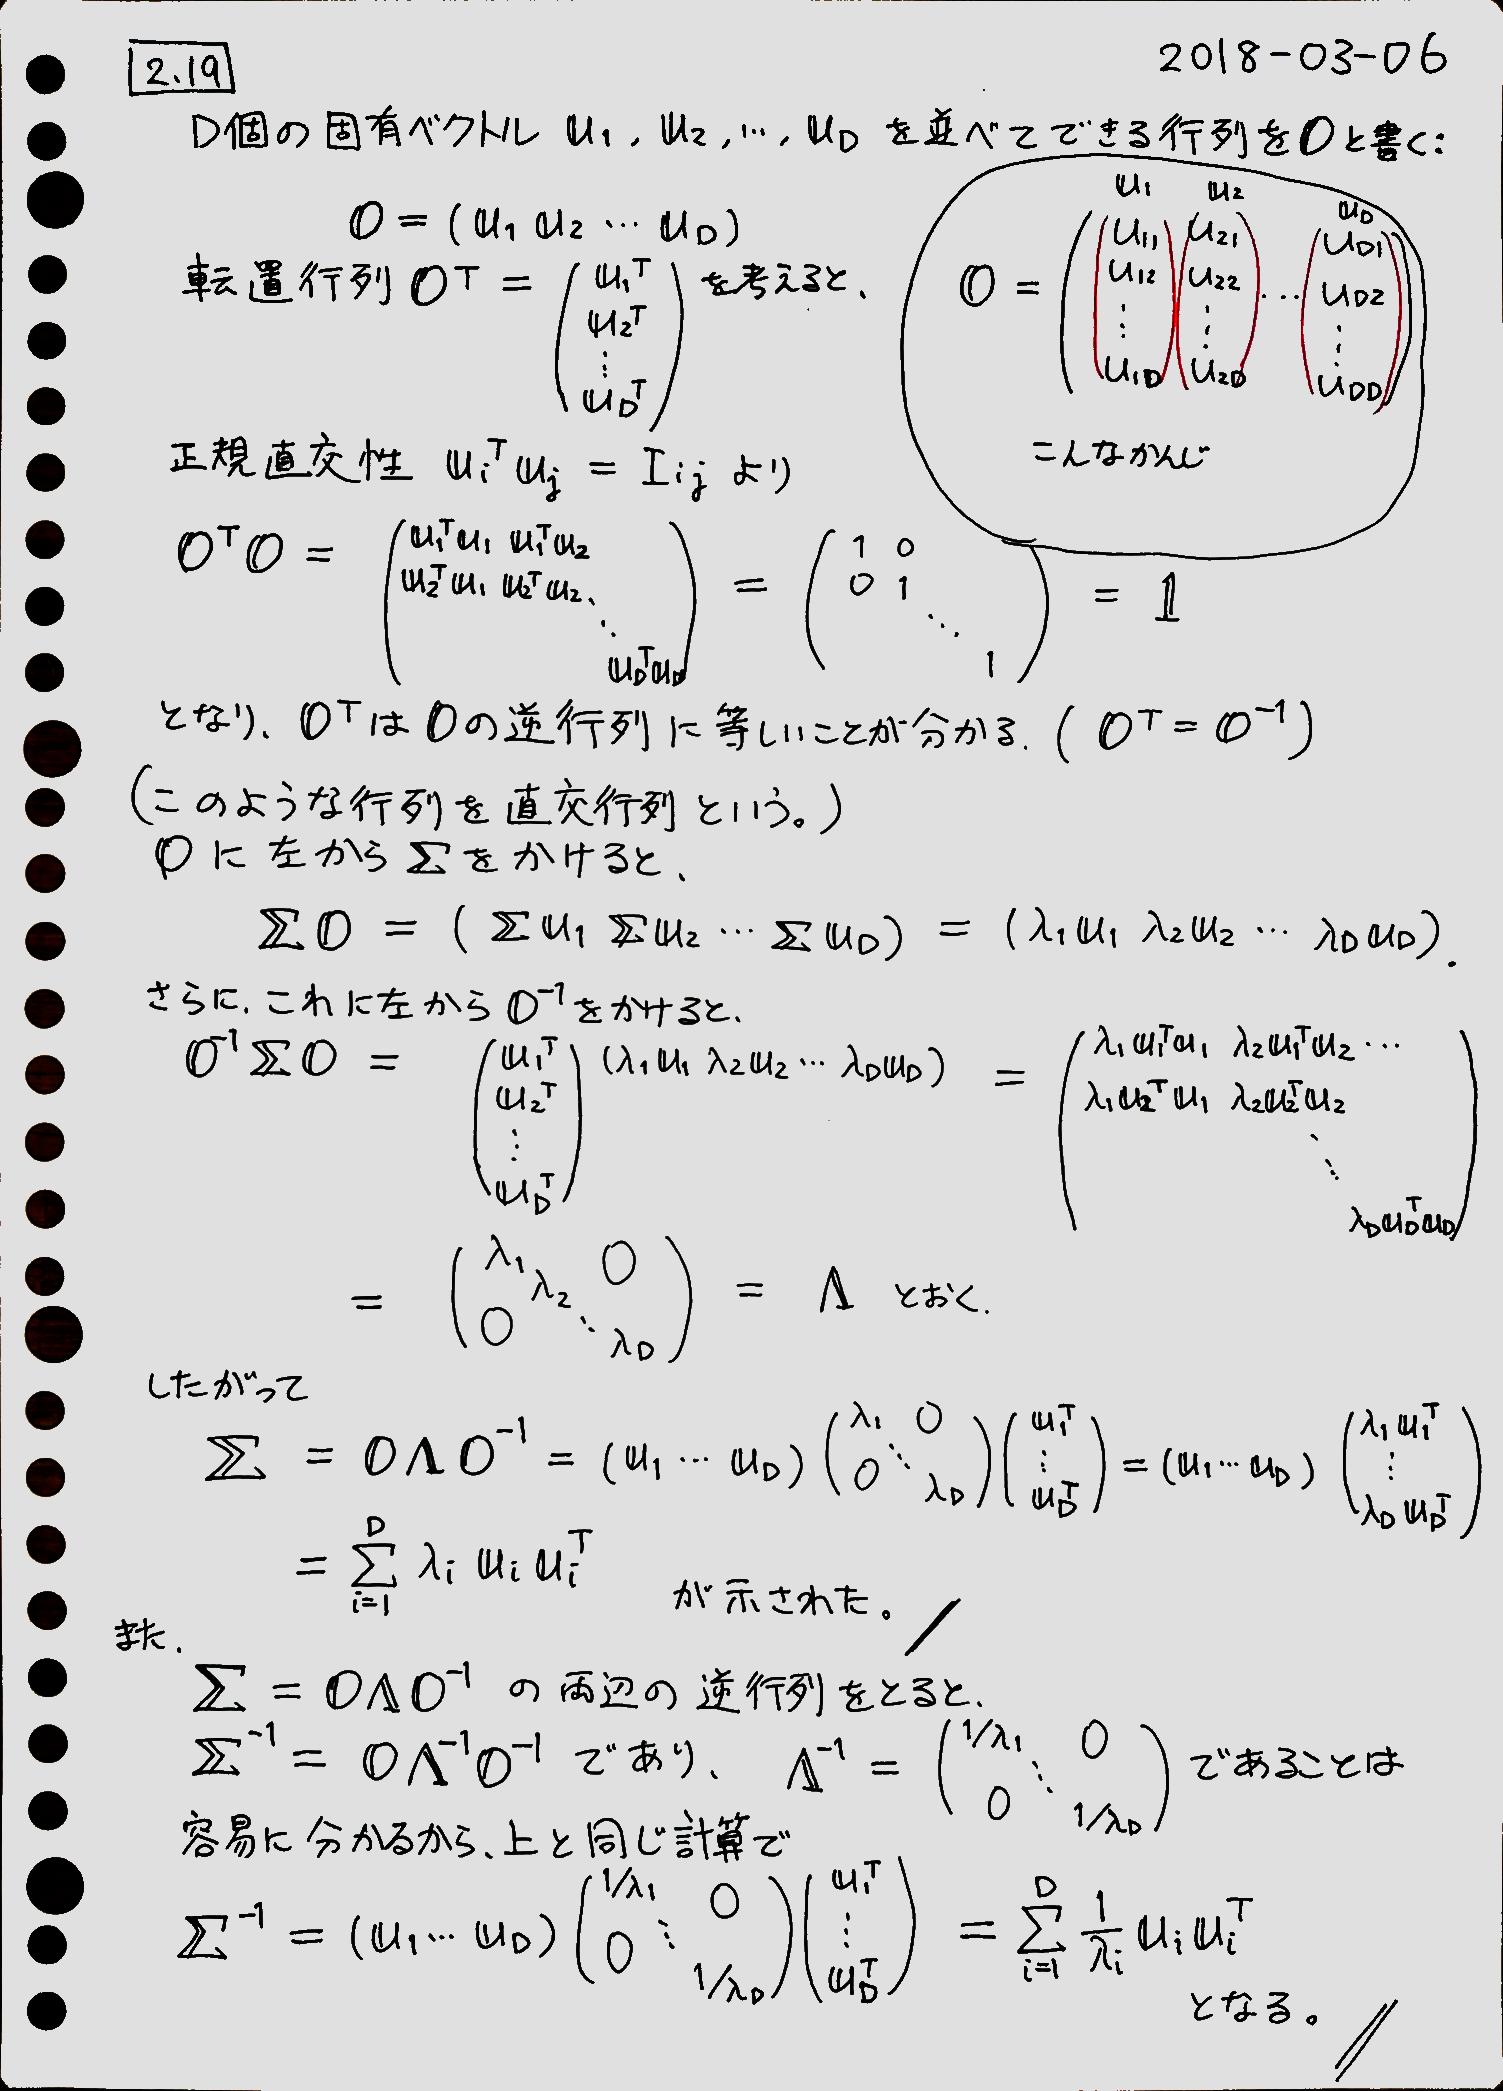 2.19 2018-03-06
D個の固有ベクトル 𝕦₁, 𝕦₂, …, 𝕦_D を並べてできる行列を𝕆と書く:
𝕆 = (𝕦₁ 𝕦₂ ⋯ 𝕦_D)
転置行列 𝕆ᵀ = (𝕦₁ᵀ 𝕦₂ᵀ ⋮ 𝕦_Dᵀ) を考えると、
𝕦₁ 𝕦₂ 𝕦_D
𝕆 = ((u₁₁ u₁₂ ⋮ u₁D) (u₂₁ u₂₂ ⋮ u₂D) ⋯ (u_D1 u_D2 ⋮ u_DD))
こんなかんじ
正規直交性 𝕦ᵢᵀ𝕦ⱼ = Iᵢⱼ より
𝕆ᵀ𝕆 = (𝕦₁ᵀ𝕦₁ 𝕦₁ᵀ𝕦₂ 𝕦₂ᵀ𝕦₁ 𝕦₂ᵀ𝕦₂ ⋱ 𝕦_Dᵀ𝕦_D) = (1 0 0 1 ⋱ 1) = 𝟙
となり、𝕆ᵀは𝕆の逆行列に等しいことが分かる. (𝕆ᵀ = 𝕆⁻¹)
(このような行列を直交行列という。)
𝕆に左からΣをかけると、
Σ𝕆 = (Σ𝕦₁ Σ𝕦₂ ⋯ Σ𝕦_D) = (λ₁𝕦₁ λ₂𝕦₂ ⋯ λ_D𝕦_D).
さらに、これに左から𝕆⁻¹をかけると、
𝕆⁻¹Σ𝕆 = (𝕦₁ᵀ 𝕦₂ᵀ ⋮ 𝕦_Dᵀ) (λ₁𝕦₁ λ₂𝕦₂ ⋯ λ_D𝕦_D) = (λ₁𝕦₁ᵀ𝕦₁ λ₂𝕦₁ᵀ𝕦₂ ⋯ λ₁𝕦₂ᵀ𝕦₁ λ₂𝕦₂ᵀ𝕦₂ ⋱ λ_D𝕦_Dᵀ𝕦_D)
= (λ₁ 0 λ₂ 0 ⋱ λ_D) = Λ とおく.
したがって
Σ = 𝕆Λ𝕆⁻¹ = (𝕦₁ ⋯ 𝕦_D) (λ₁ 0 ⋱ 0 λ_D) (𝕦₁ᵀ ⋮ 𝕦_Dᵀ) = (𝕦₁ ⋯ 𝕦_D) (λ₁𝕦₁ᵀ ⋮ λ_D𝕦_Dᵀ)
= ∑_{i=1}^{D} λᵢ 𝕦ᵢ 𝕦ᵢᵀ が示された。
また、
Σ = 𝕆Λ𝕆⁻¹ の両辺の逆行列をとると、
Σ⁻¹ = 𝕆Λ⁻¹𝕆⁻¹ であり、 Λ⁻¹ = (1/λ₁ 0 ⋱ 0 1/λ_D) であることは
容易に分かるから、上と同じ計算で
Σ⁻¹ = (𝕦₁ ⋯ 𝕦_D) (1/λ₁ 0 0 ⋱ 1/λ_D) (𝕦₁ᵀ ⋮ 𝕦_Dᵀ) = ∑_{i=1}^{D} 1/λᵢ 𝕦ᵢ𝕦ᵢᵀ
となる。